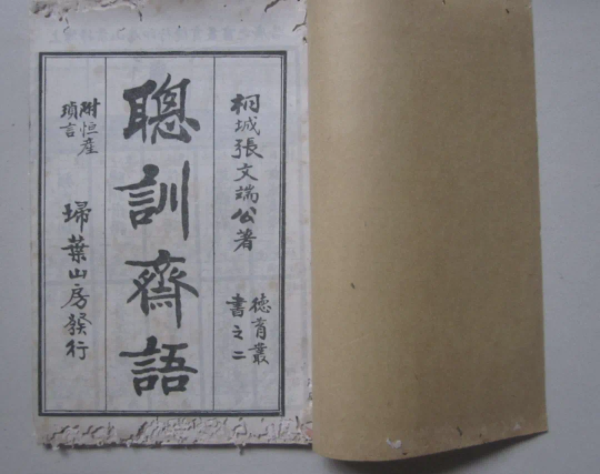 桐城張文端公著
德育叢
書之二
聰訓齋語
附恒產
瑣言
埽葉山房發行